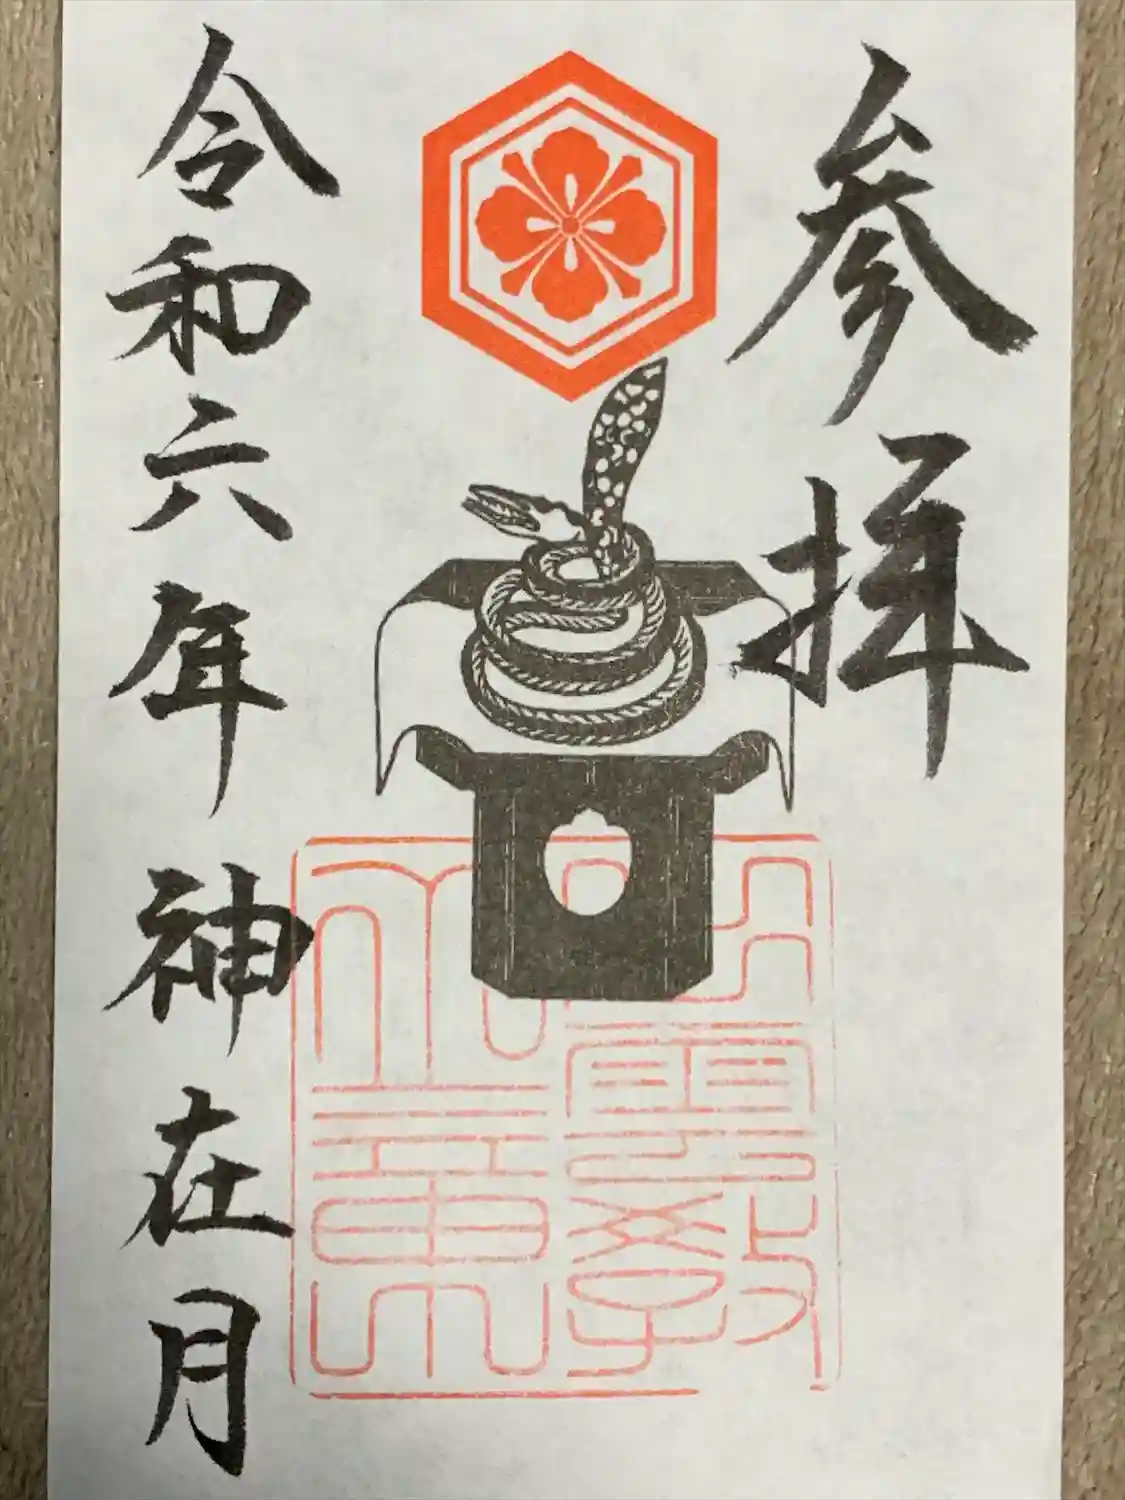 参拝
令和六年神在月